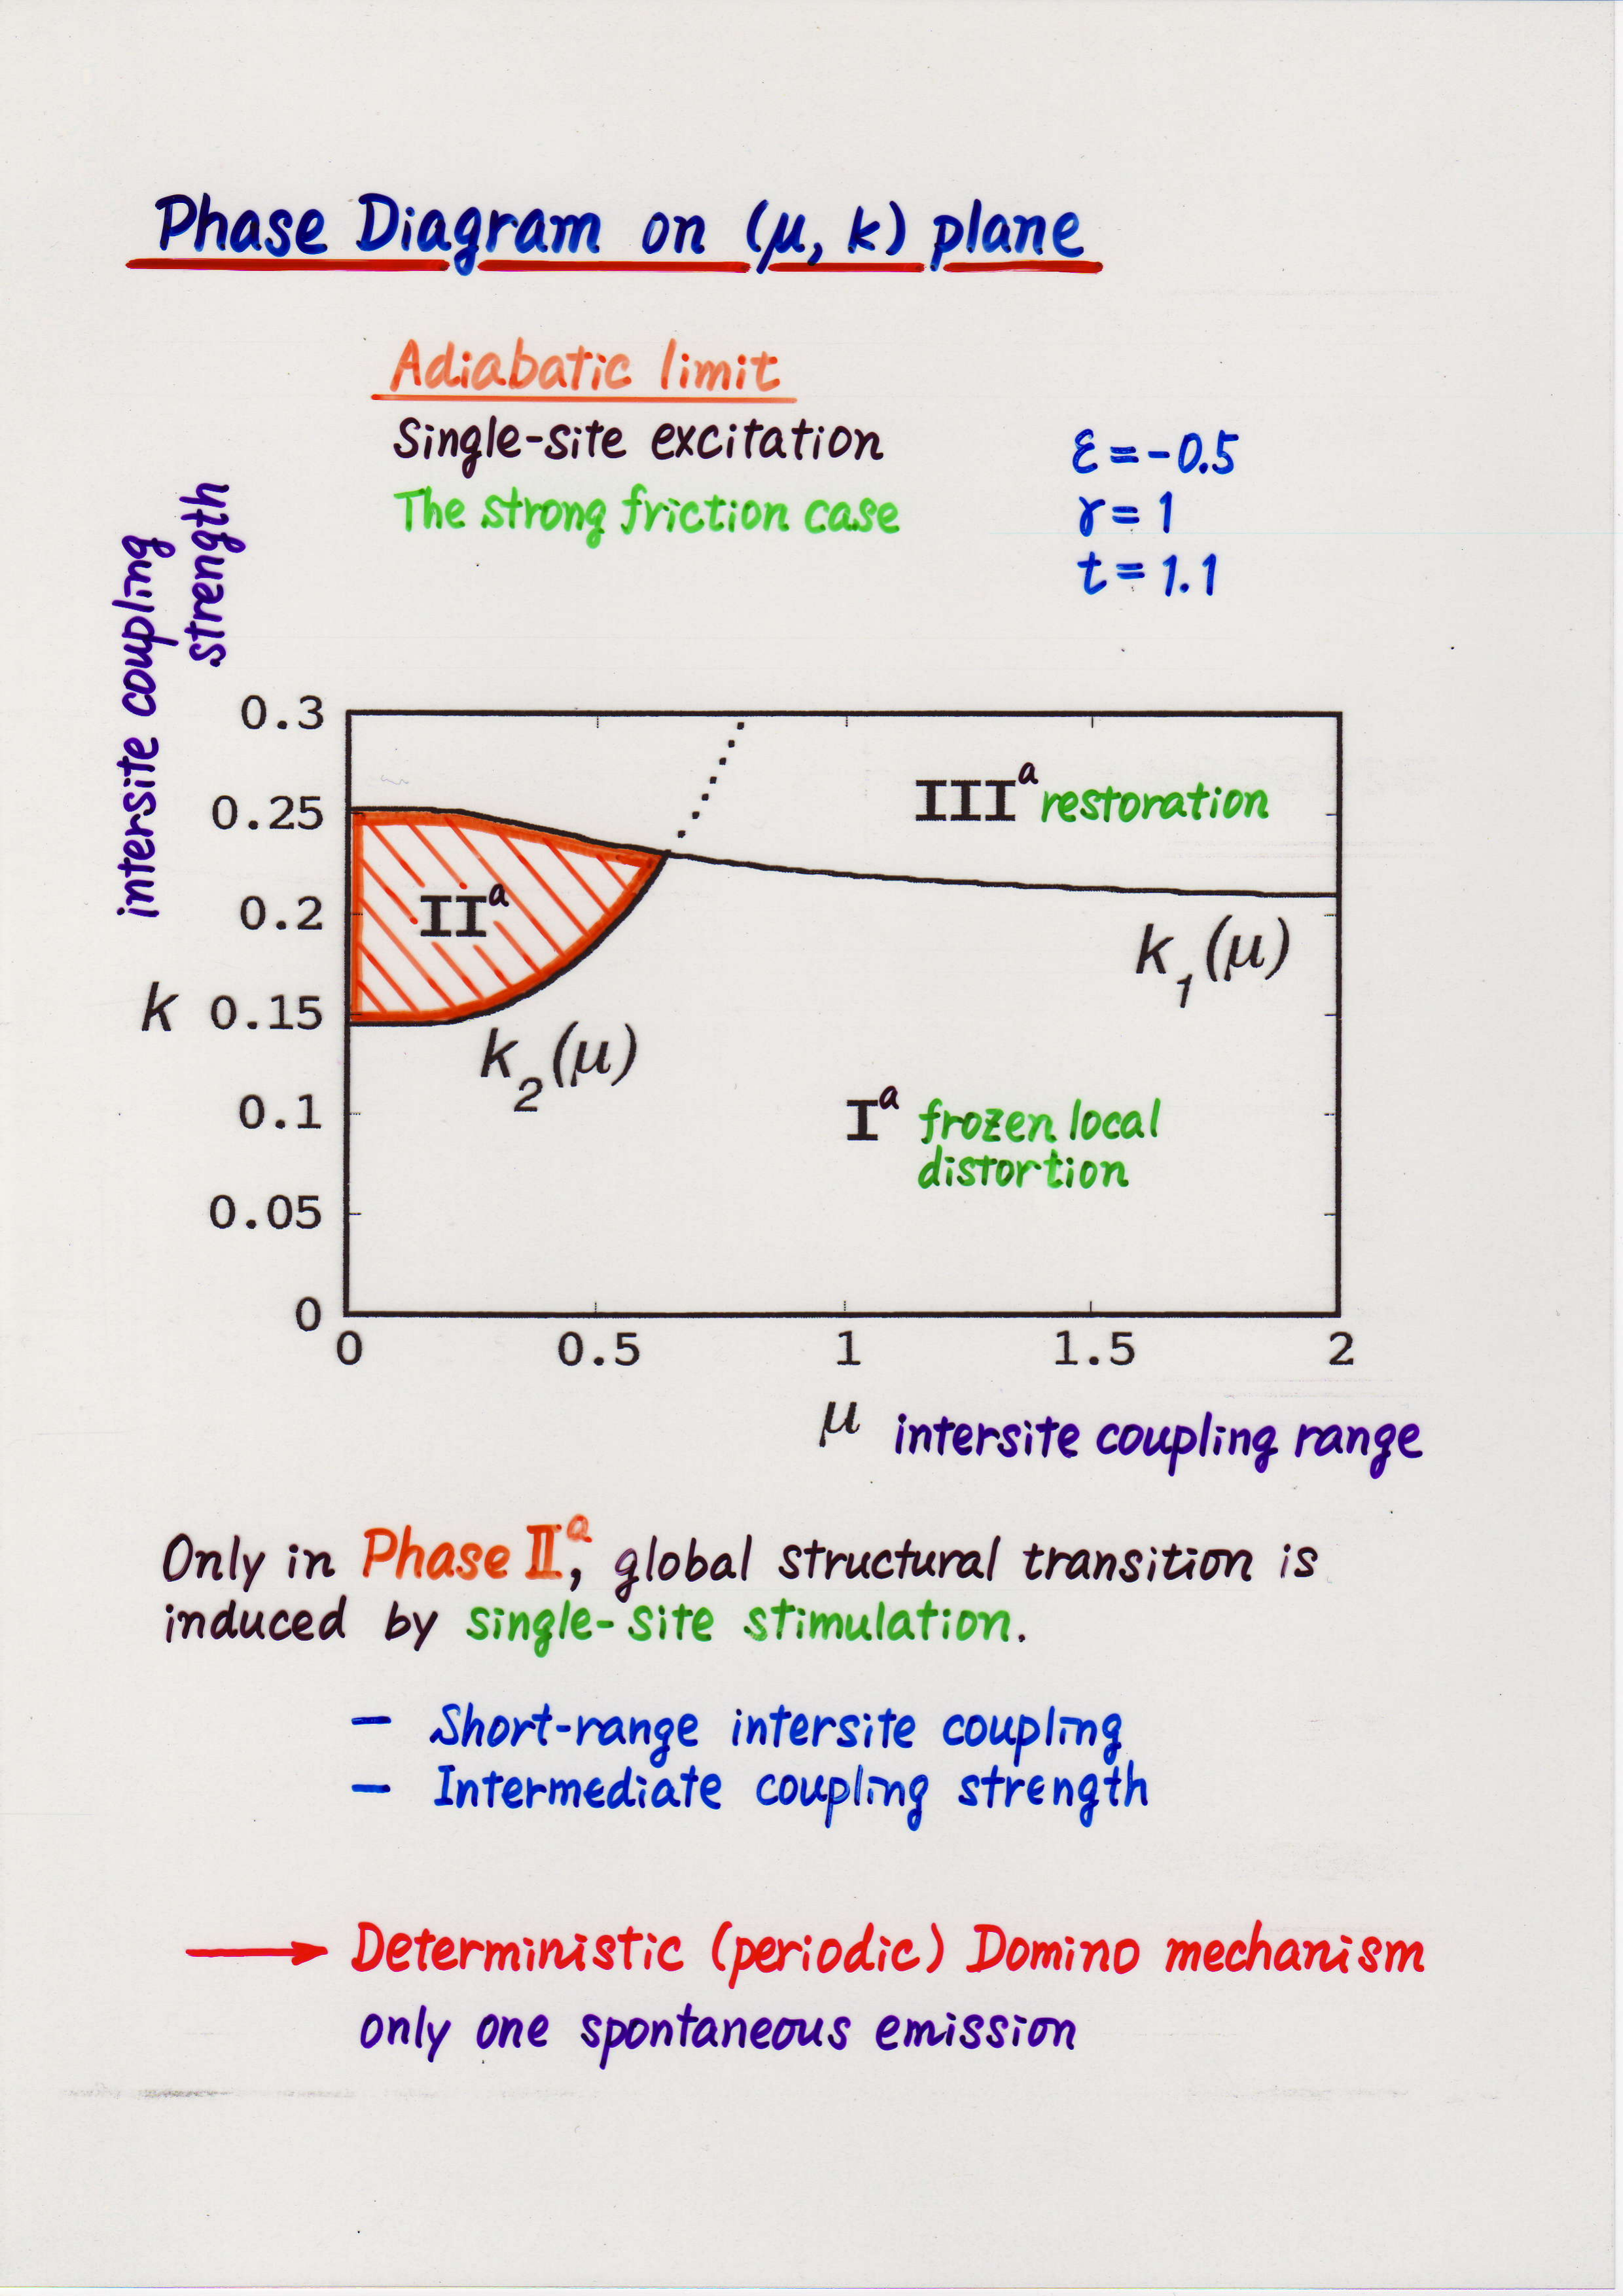 Phase Diagram on (μ, k) plane
Adiabatic limit
Single-site excitation
The strong friction case
ε = -0.5
γ = 1
t = 1.1
intersite coupling
strength
0.3
0.25
0.2
k 0.15
0.1
0.05
0
0 0.5 1 1.5 2
III^a restoration
II^a
k_1(μ)
k_2(μ)
I^a frozen local
distortion
μ intersite coupling range
Only in Phase II^a, global structural transition is
induced by single-site stimulation.
— Short-range intersite coupling
— Intermediate coupling strength
→ Deterministic (periodic) Domino mechanism
only one spontaneous emission